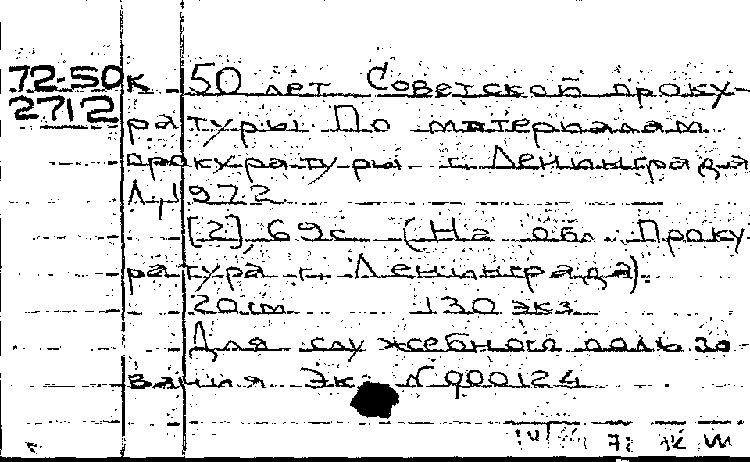 72-50к 50 лет Советской проку-
2712
ратуры. По материалам
прокуратуры г. Ленинграда
Л., 1972.
[2], 69 с. (На обл. Проку
ратура г. Ленинграда).
20 см 130 экз.
Для служебного пользо-
вания Экз N000124